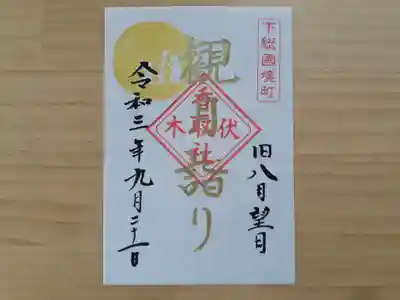 下総國境町
旧八月望日
観月詣り
伏木
香取社
令和三年九月二十一日